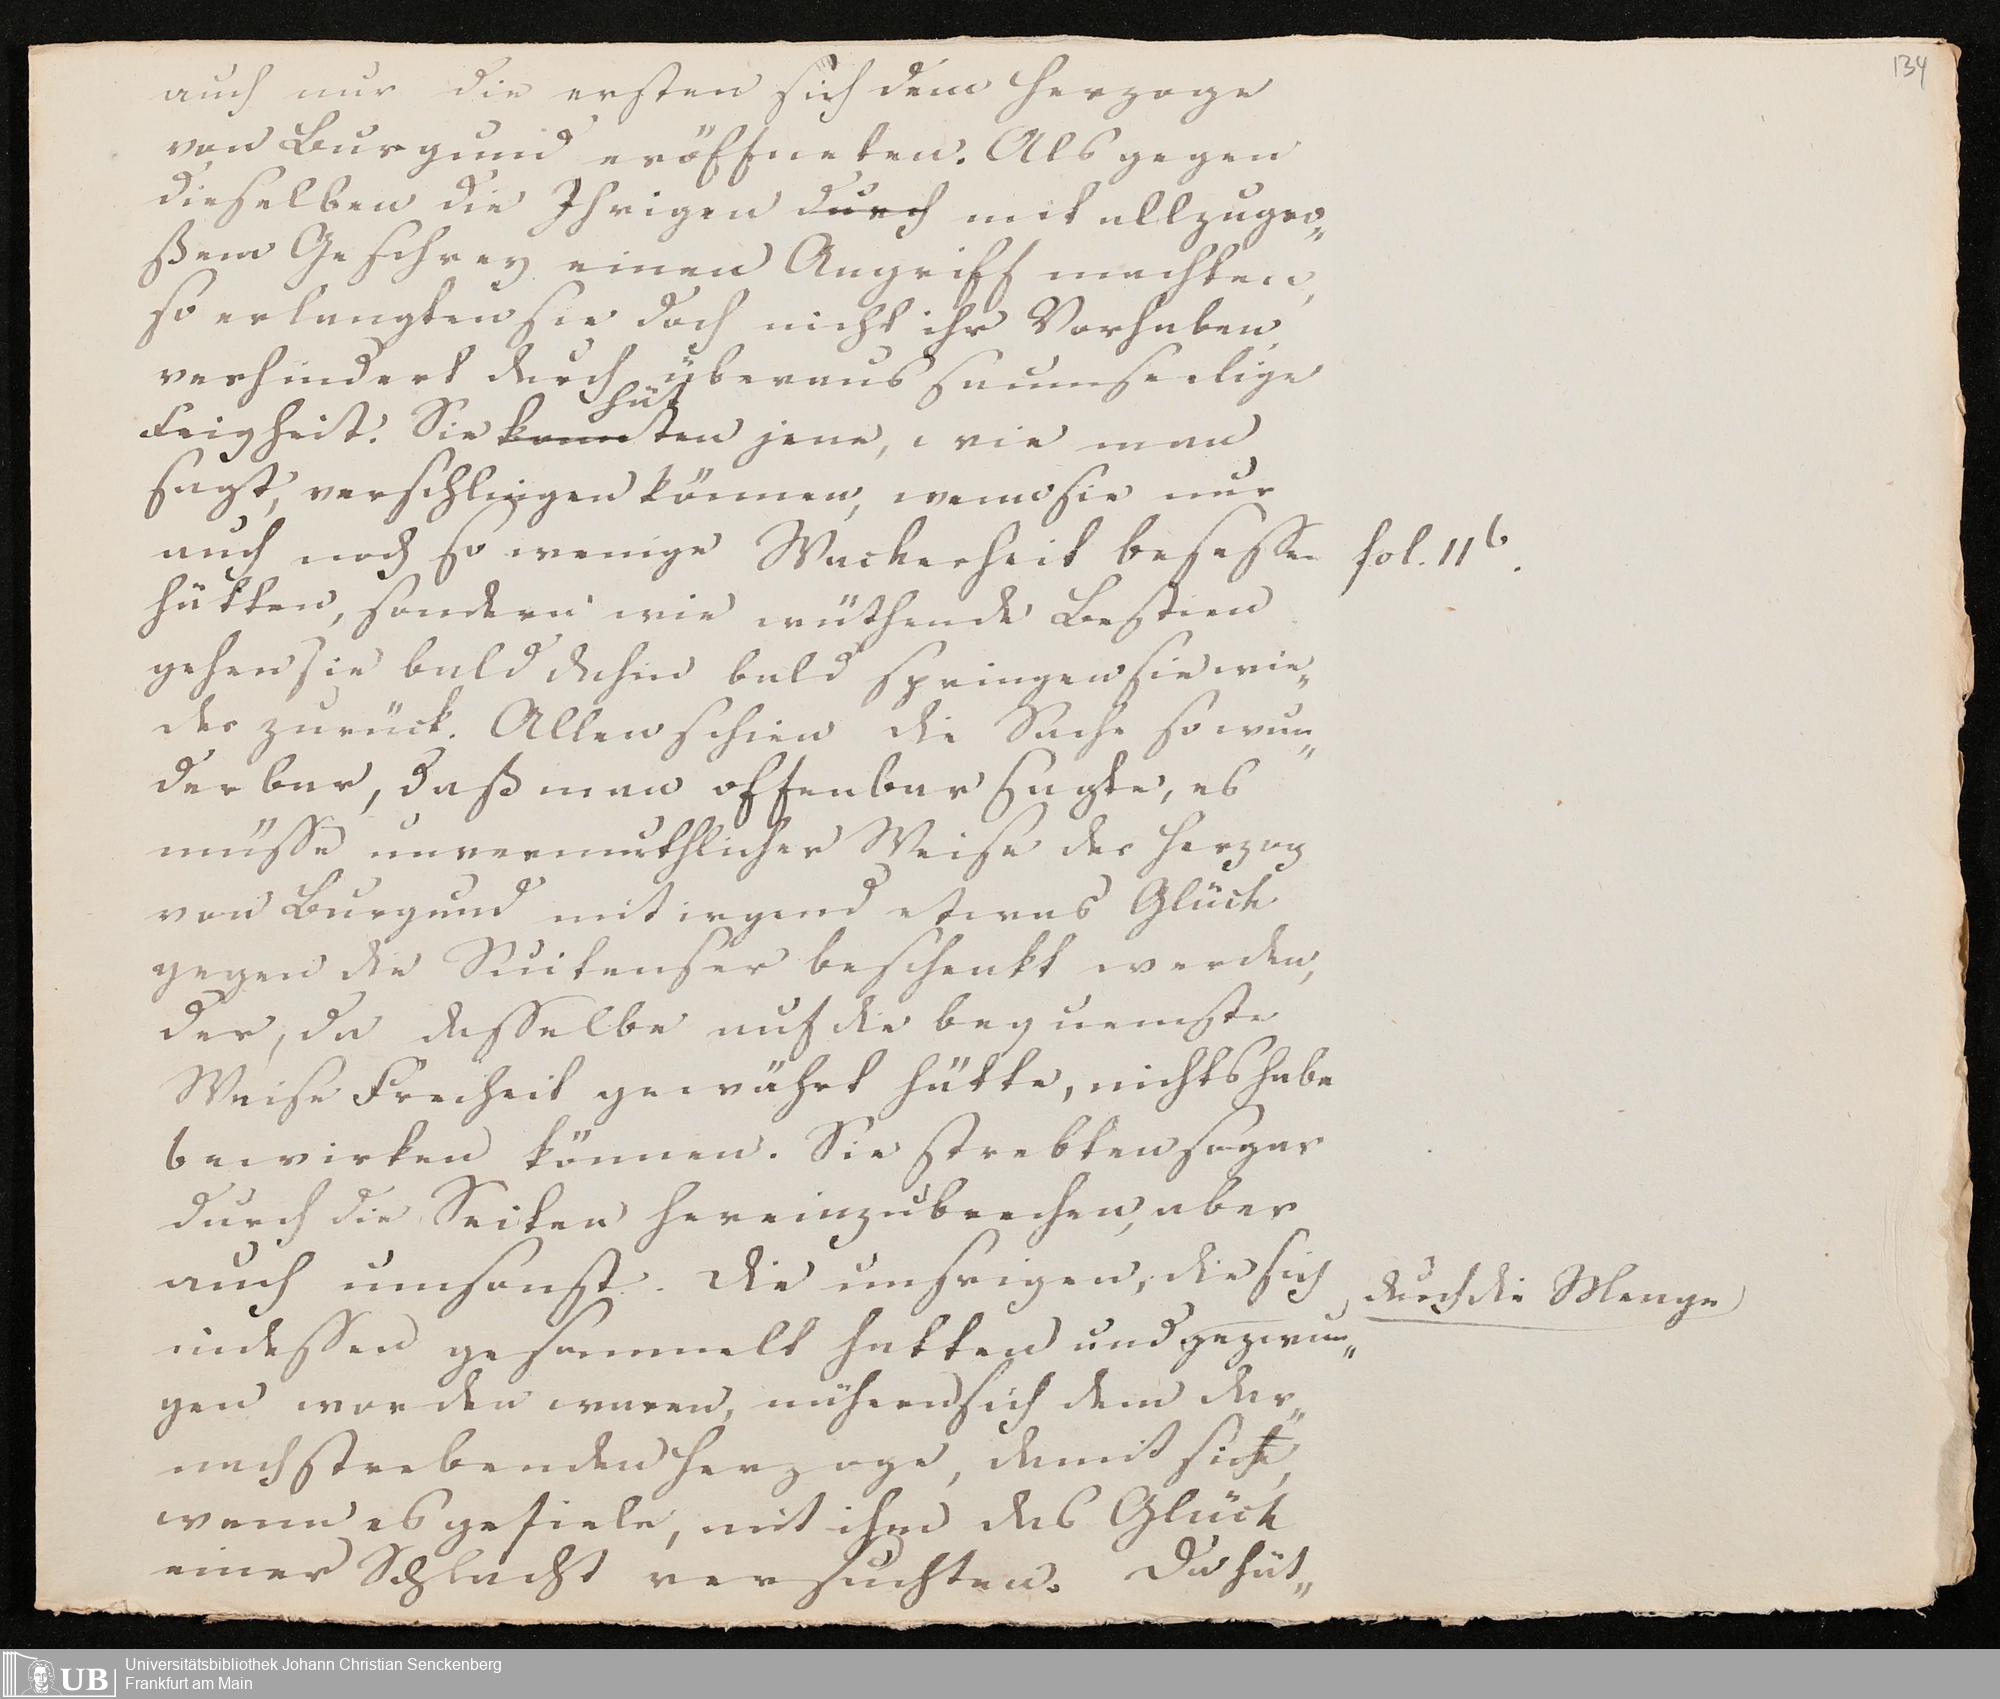 134
auch nur die ersten sich dem Herzoge
von Burgund eröffneten. Als gegen
dieselben die Ihrigen durch mit allzugro„
ßem Geschrey einen Angriff machten,
so erlangten sie doch nicht ihr Vorhaben,
verhindert durch überaus saumseelige
hät
Feigheit. Sie konnten jene, wie man
sagt, verschlingen können, wenn sie nur
auch noch so wenige Wackerheit besessen fol. 11b.
hätten, sondern wie wüthende Bestien
gehen sie bald dahin bald springen sie wie„
der zurück. Allen schien die Sache so wun„
derbar, daß man offenbar sagte, es
müsse unvermuthlicher Weise der Herzog
von Burgund mit irgend etwas Glück
gegen die Suitenser beschenkt werden,
der, da dasselbe auf die bequemste
Weise Freiheit gewährt hätte, nichts habe
bewirken können. Sie strebten sogar
durch die Seiten hereinzubrechen, aber
auch umsonst. Die unsrigen, die sich
durch die Menge
indessen gesammelt hatten und gezwun„
gen worden waren, nähern sich dem dar„
nachstrebenden Herzoge, damit sie,
wenn es gefiele, mit ihm das Glück
einer Schlacht versuchten. Da hät„
Universitätsbibliothek Johann Christian Senckenberg
UB
Frankfurt am Main